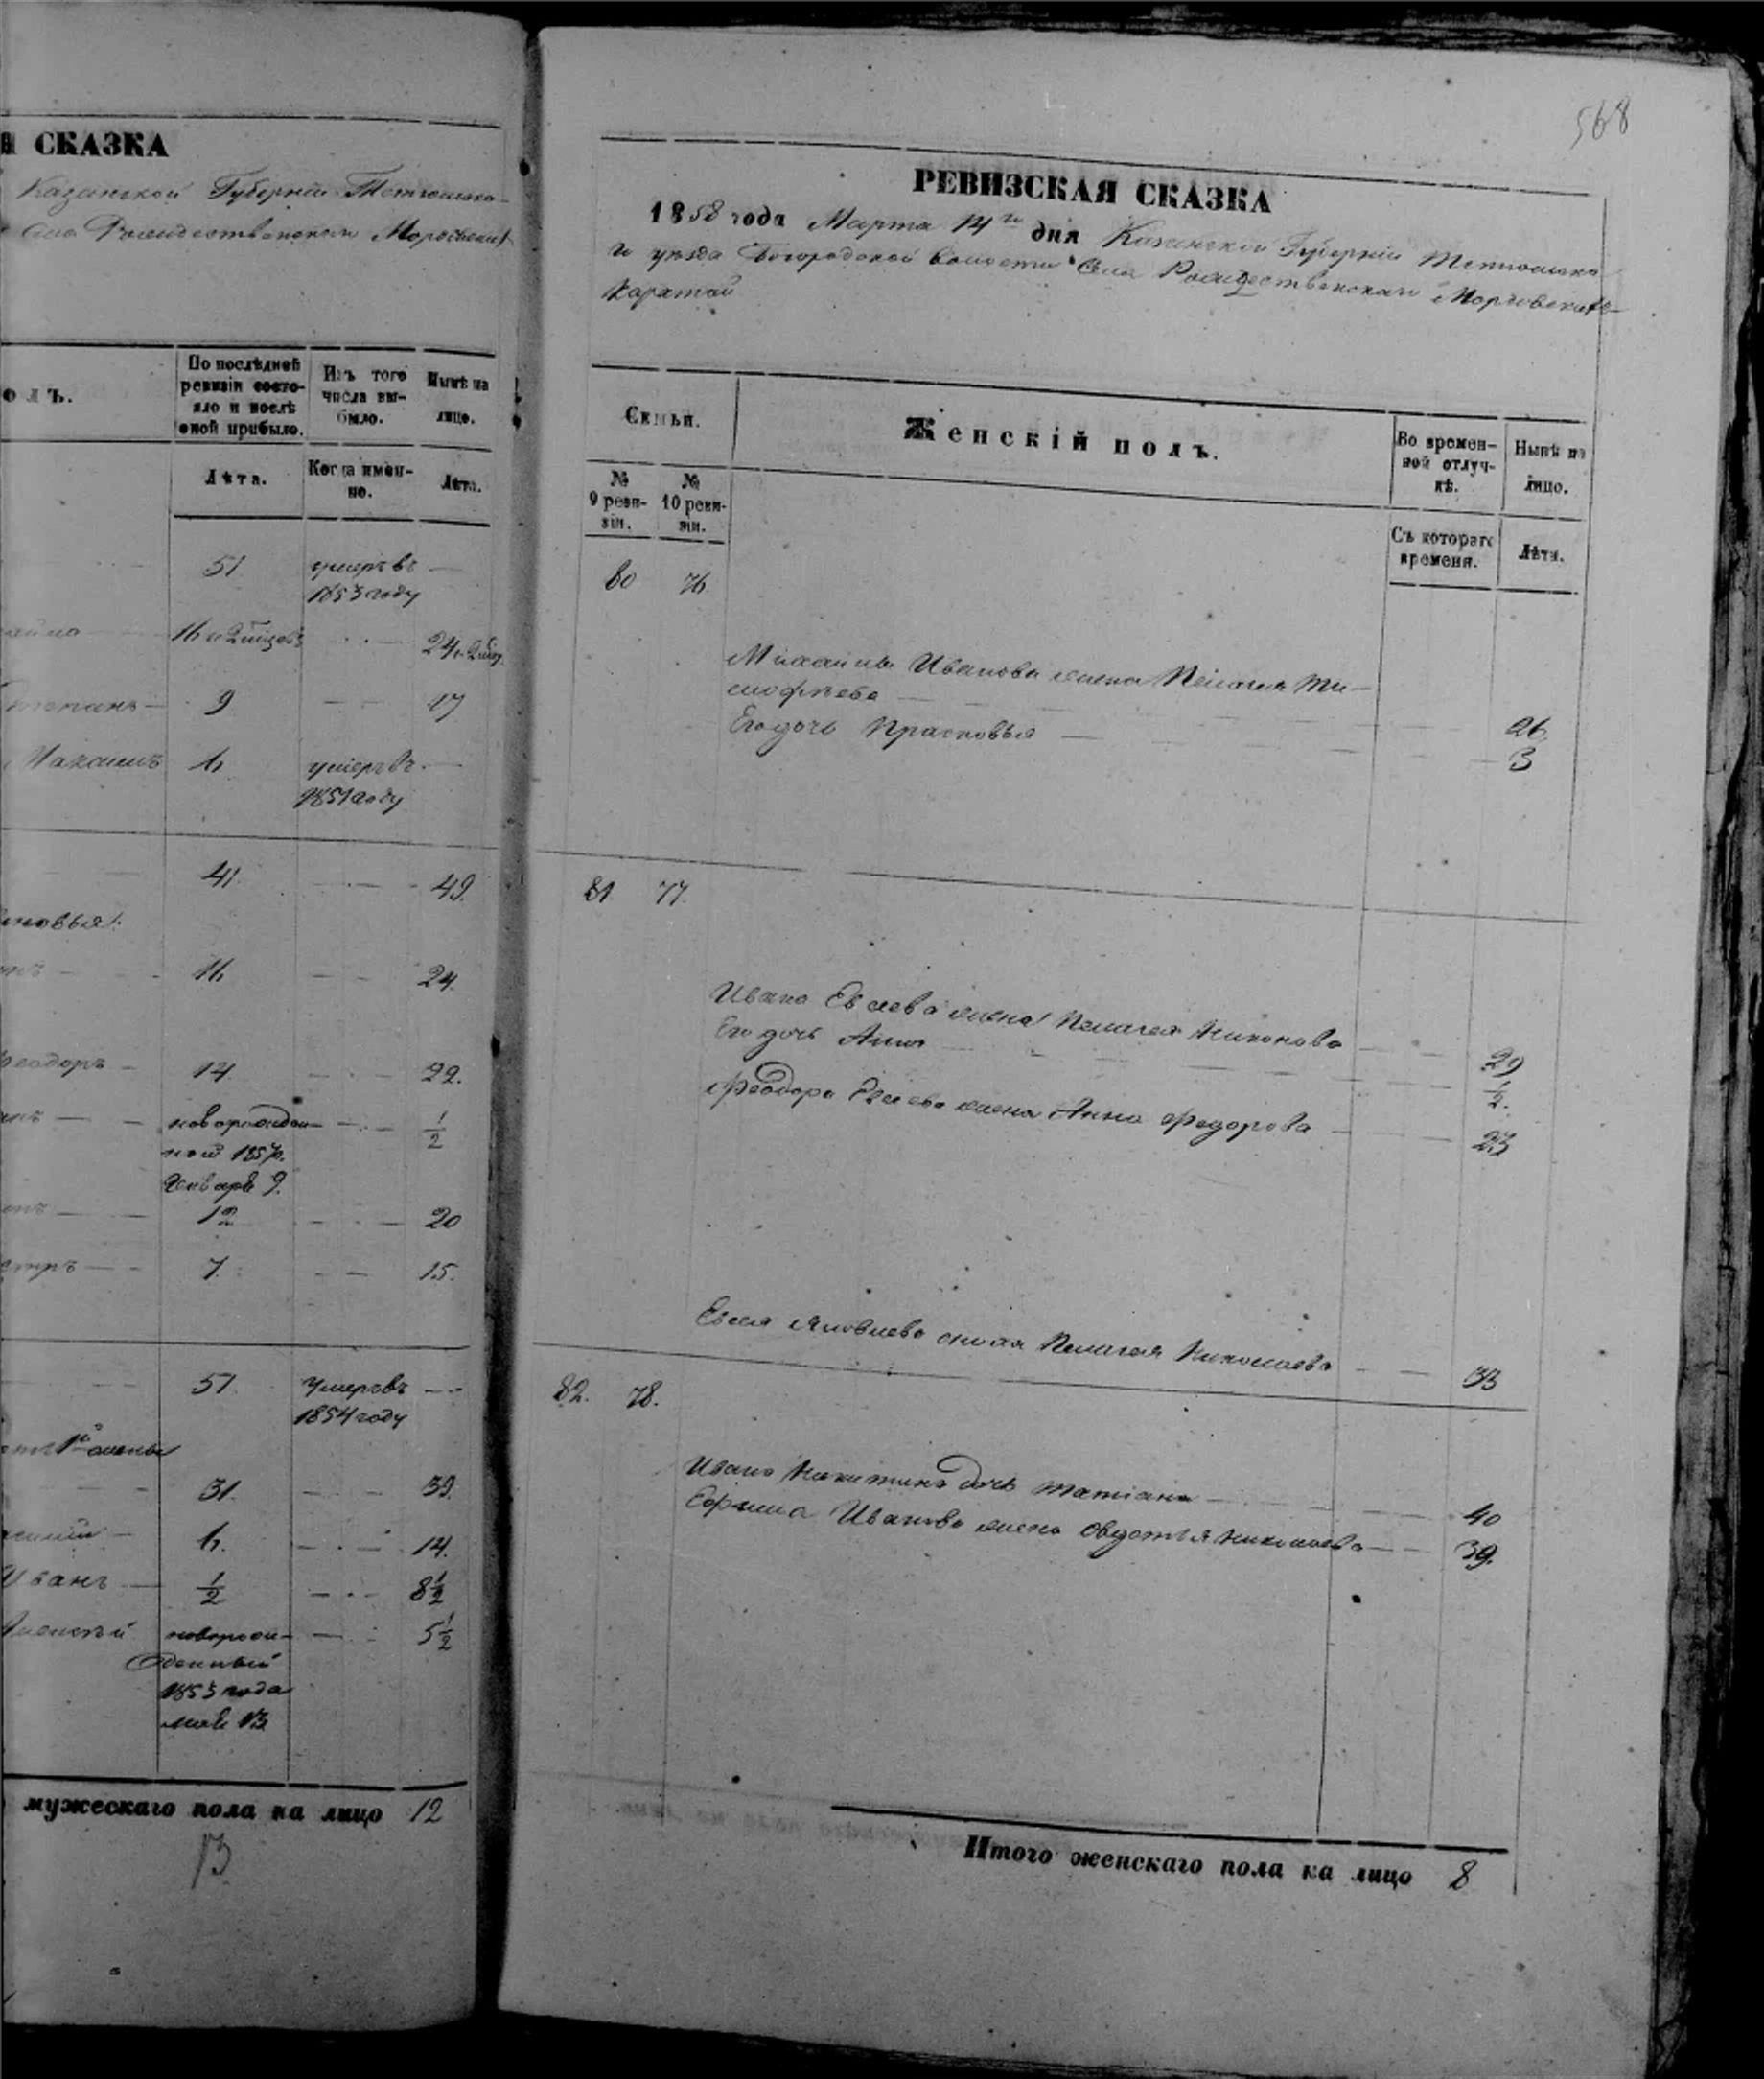 СКАЗКА
Казанской Губерніи Тетюшска-
Села Рождественскаго Мордовских
олъ.
По послѣдней
ревизіи состо-
яло и послѣ
оной прибыло.
Изъ того
числа вы-
было.
Нынѣ на
лицо.
Лѣта.
Когда имен-
но.
Лѣта.
51 умеръ въ —
1853 году
16 и 2 мѣсяц. 24 и 2 мѣс.
9 17
Максимъ 6 умеръ въ —
1851 году
41 49.
16 24.
Феодоръ 14 22.
новорожден-
ной 1857 г. ½
Января 9.
12 20
7. 15.
51. Умеръ въ
1854 году
отъ 1й жены
31. 39.
6. 14.
Иванъ ½ 8½
Алексѣй новорож- 5½
денный
1853 года
мая 13
мужескаго пола на лицо 12
13
568
РЕВИЗСКАЯ СКАЗКА
1858 года Марта 14го дня Казанской Губерніи Тетюшска-
го уѣзда Богородской волости Села Рождественскаго Мордовских
Каратай
Семьи.
Женскій полъ.
Во времен-
ной отлуч-
кѣ.
Нынѣ на
лицо.
№
9 реви-
зіи.
№
10 реви-
зіи.
Съ котораго
времени.
Лѣта.
80 76
Михаила Иванова жена Пелагея Ти-
мофѣева 26
Его дочь Прасковья 3
81 77.
Ивана Евсеева жена Пелагея Никонова 29
Его дочь Анна ½.
Феодора Евсеева жена Анна Федорова 23
Евсея Яковлева сноха Пелагея Николаева 33
82. 78.
Ивана Никитина дочь Татіана 40
Ефрема Иванова жена Овдотья Николаева 39.
Итого женскаго пола на лицо 8